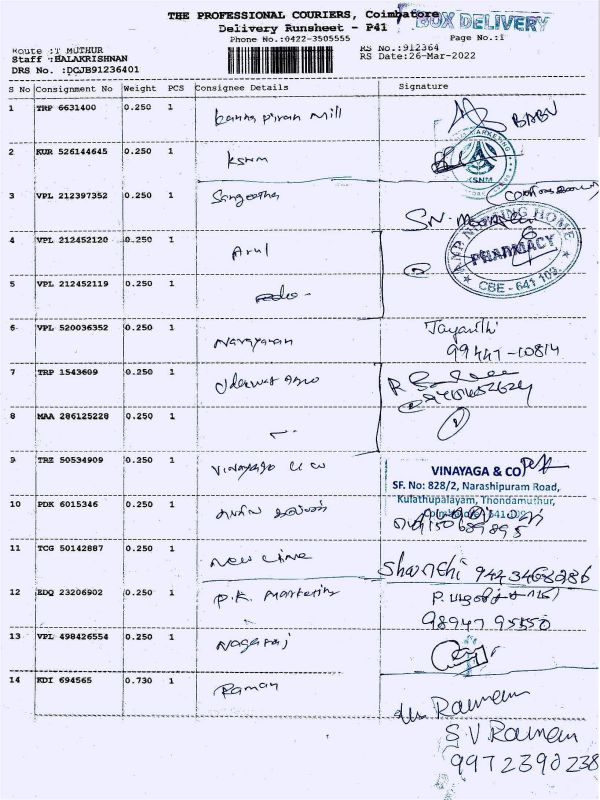 THE PROFESSIONAL COURIERS, Coimbatore
BOX DELIVERY
Delivery Runsheet - P41
Phone No.:0422-3505555 Page No.:1
Route :T MUTHUR RS No.:912364
Staff :BALAKRISHNAN RS Date:26-Mar-2022
DRS No. :DCJB91236401
S No Consignment No Weight PCS Consignee Details Signature
1 TRP 6631400 0.250 1 Mill BABU
2 KUR 526144645 0.250 1 KSNM KSNM
3 VPL 212397352 0.250 1 Sangeetha
4 VPL 212452120 0.250 1 Arul NURSING HOME PHARMACY
5 VPL 212452119 0.250 1 CBE - 641 109.
6 VPL 520036352 0.250 1 Narayanan Jayanthi
99447-10814
7 TRP 1543609 0.250 1
8 MAA 286125228 0.250 1
9 TRZ 50534909 0.250 1 Vinayaga & Co VINAYAGA & CO
SF. No: 828/2, Narashipuram Road,
Kulathupalayam, Thondamuthur,
10 PDK 6015346 0.250 1
11 TCG 50142887 0.250 1 New Line Shanthi 9443468286
12 EDQ 23206902 0.250 1 P.K. Marketing
98947 95550
13 VPL 498426554 0.250 1 Nagaraj
14 KDI 694565 0.730 1 Raman Raman
S V Raman
9972390238